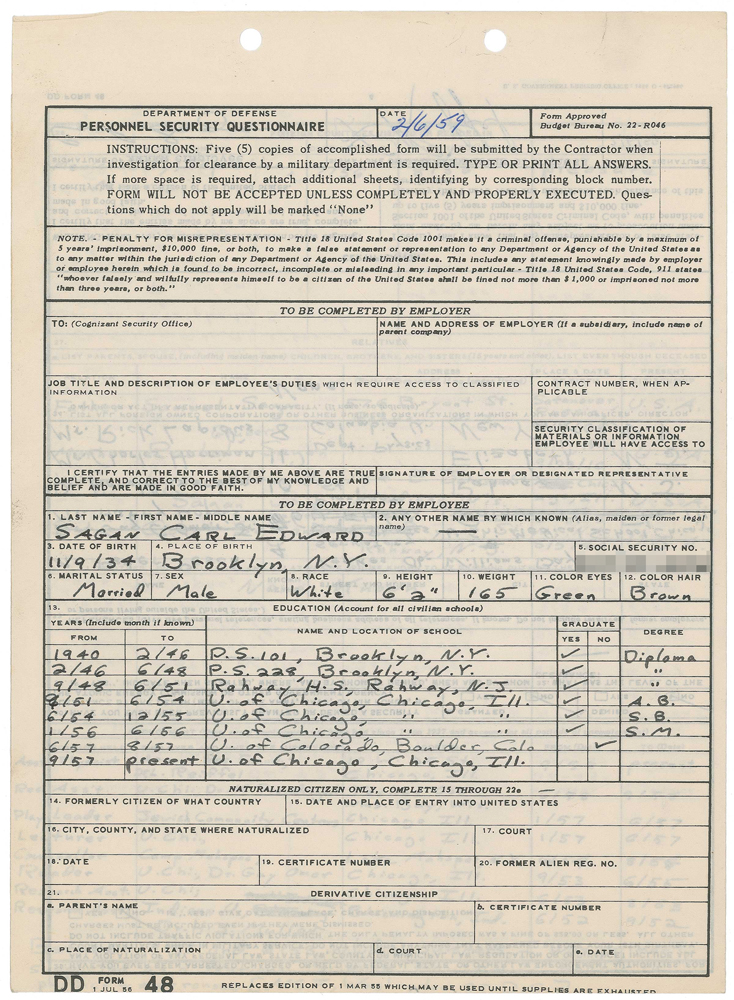 DEPARTMENT OF DEFENSE
PERSONNEL SECURITY QUESTIONNAIRE
DATE
2/6/59
Form Approved
Budget Bureau No. 22-R046
INSTRUCTIONS: Five (5) copies of accomplished form will be submitted by the Contractor when
investigation for clearance by a military department is required. TYPE OR PRINT ALL ANSWERS.
If more space is required, attach additional sheets, identifying by corresponding block number.
FORM WILL NOT BE ACCEPTED UNLESS COMPLETELY AND PROPERLY EXECUTED. Ques-
tions which do not apply will be marked "None"
NOTE. - PENALTY FOR MISREPRESENTATION - Title 18 United States Code 1001 makes it a criminal offense, punishable by a maximum of
5 years' imprisonment, $10,000 fine, or both, to make a false statement or representation to any Department or Agency of the United States as
to any matter within the jurisdiction of any Department or Agency of the United States. This includes any statement knowingly made by employer
or employee herein which is found to be incorrect, incomplete or misleading in any important particular - Title 18 United States Code, 911 states
"whoever falsely and wilfully represents himself to be a citizen of the United States shall be fined not more than $1,000 or imprisoned not more
than three years, or both."
TO BE COMPLETED BY EMPLOYER
TO: (Cognizant Security Office)
NAME AND ADDRESS OF EMPLOYER (If a subsidiary, include name of
parent company)
JOB TITLE AND DESCRIPTION OF EMPLOYEE'S DUTIES WHICH REQUIRE ACCESS TO CLASSIFIED
INFORMATION
CONTRACT NUMBER, WHEN AP-
PLICABLE
SECURITY CLASSIFICATION OF
MATERIALS OR INFORMATION
EMPLOYEE WILL HAVE ACCESS TO
I CERTIFY THAT THE ENTRIES MADE BY ME ABOVE ARE TRUE
COMPLETE, AND CORRECT TO THE BEST OF MY KNOWLEDGE AND
BELIEF AND ARE MADE IN GOOD FAITH.
SIGNATURE OF EMPLOYER OR DESIGNATED REPRESENTATIVE
TO BE COMPLETED BY EMPLOYEE
1. LAST NAME - FIRST NAME - MIDDLE NAME
SAGAN CARL EDWARD
2. ANY OTHER NAME BY WHICH KNOWN (Alias, maiden or former legal
name)
—
3. DATE OF BIRTH
11/9/34
4. PLACE OF BIRTH
Brooklyn, N.Y.
5. SOCIAL SECURITY NO.
6. MARITAL STATUS
Married
7. SEX
Male
8. RACE
White
9. HEIGHT
6'2"
10. WEIGHT
165
11. COLOR EYES
Green
12. COLOR HAIR
Brown
13. EDUCATION (Account for all civilian schools)
YEARS (Include month if known)
FROM TO
NAME AND LOCATION OF SCHOOL
GRADUATE
YES NO
DEGREE
1940 2/46 P.S. 101, Brooklyn, N.Y. ✓ Diploma
2/46 6/48 P.S. 228, Brooklyn, N.Y. ✓ "
9/48 6/51 Rahway H.S., Rahway, N.J. ✓ "
9/51 6/54 U. of Chicago, Chicago, Ill. ✓ A.B.
6/54 12/55 U. of Chicago, " " ✓ S.B.
1/56 6/56 U. of Chicago, " " ✓ S.M.
6/57 8/57 U. of Colorado, Boulder, Colo ✓
9/57 present U. of Chicago, Chicago, Ill.
NATURALIZED CITIZEN ONLY, COMPLETE 15 THROUGH 22e —
14. FORMERLY CITIZEN OF WHAT COUNTRY
15. DATE AND PLACE OF ENTRY INTO UNITED STATES
16. CITY, COUNTY, AND STATE WHERE NATURALIZED
17. COURT
18. DATE
19. CERTIFICATE NUMBER
20. FORMER ALIEN REG. NO.
21. DERIVATIVE CITIZENSHIP
a. PARENT'S NAME
b. CERTIFICATE NUMBER
c. PLACE OF NATURALIZATION
d. COURT
e. DATE
DD FORM 1 JUL 56 48
REPLACES EDITION OF 1 MAR 55 WHICH MAY BE USED UNTIL SUPPLIES ARE EXHAUSTED